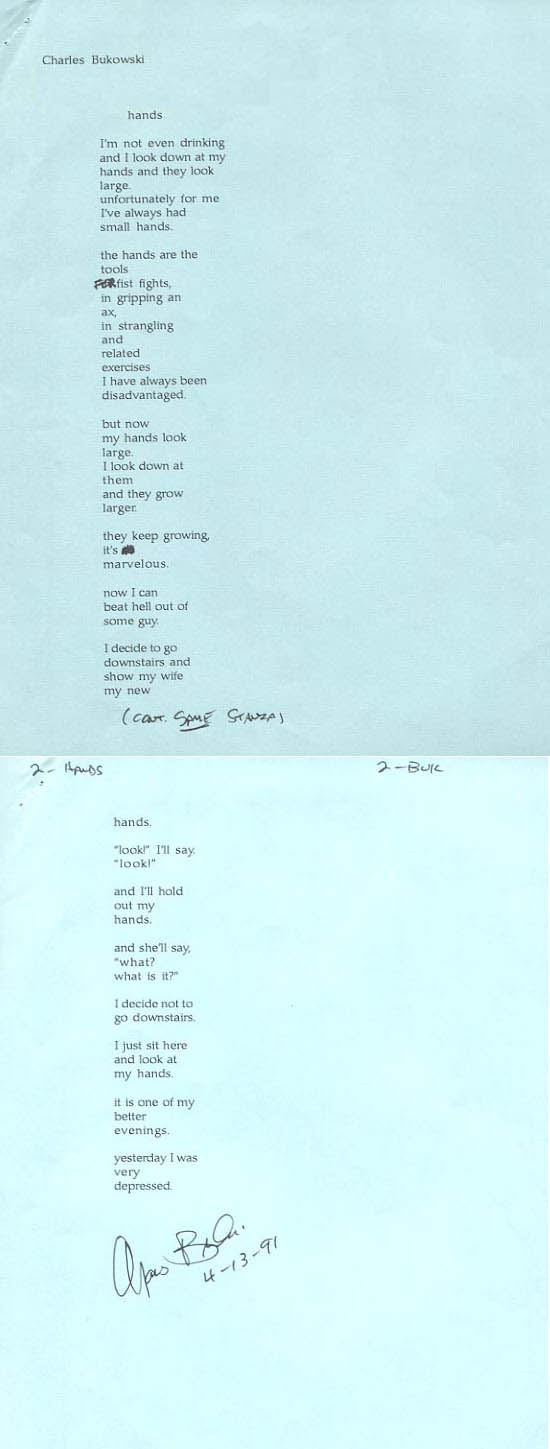 Charles Bukowski
hands
I'm not even drinking
and I look down at my
hands and they look
large.
unfortunately for me
I've always had
small hands.
the hands are the
tools
FOR fist fights,
in gripping an
ax,
in strangling
and
related
exercises
I have always been
disadvantaged.
but now
my hands look
large.
I look down at
them
and they grow
larger.
they keep growing,
it's
marvelous.
now I can
beat hell out of
some guy.
I decide to go
downstairs and
show my wife
my new
(CONT. SAME STANZA)
2 - HANDS 2 - BUK
hands.
"look!" I'll say.
"look!"
and I'll hold
out my
hands.
and she'll say,
"what?
what is it?"
I decide not to
go downstairs.
I just sit here
and look at
my hands.
it is one of my
better
evenings.
yesterday I was
very
depressed.
4-13-91